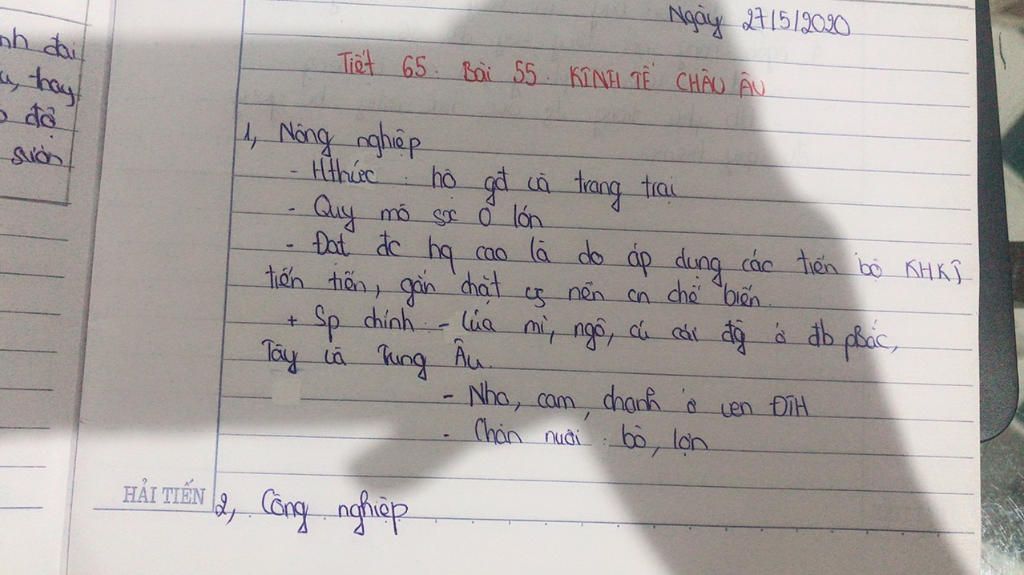 nh đai
u, hay
o độ
sườn
Ngày 27/5/2020
Tiết 65. Bài 55. KINH TẾ CHÂU ÂU
1, Nông nghiệp
- Hthức: hộ gđ và trang trại
- Quy mô sx 0 lớn
- Đạt đc hq cao là do áp dụng các tiến bộ KHKT
tiến tiến, gắn chặt vs nền cn chế biến.
+ Sp chính - Lúa mì, ngô, củ cải đg ở đb pBắc,
Tây và Trung Âu.
- Nho, cam, chanh ở ven ĐTH
- Chăn nuôi: bò, lợn
HẢI TIẾN 2, Công nghiệp